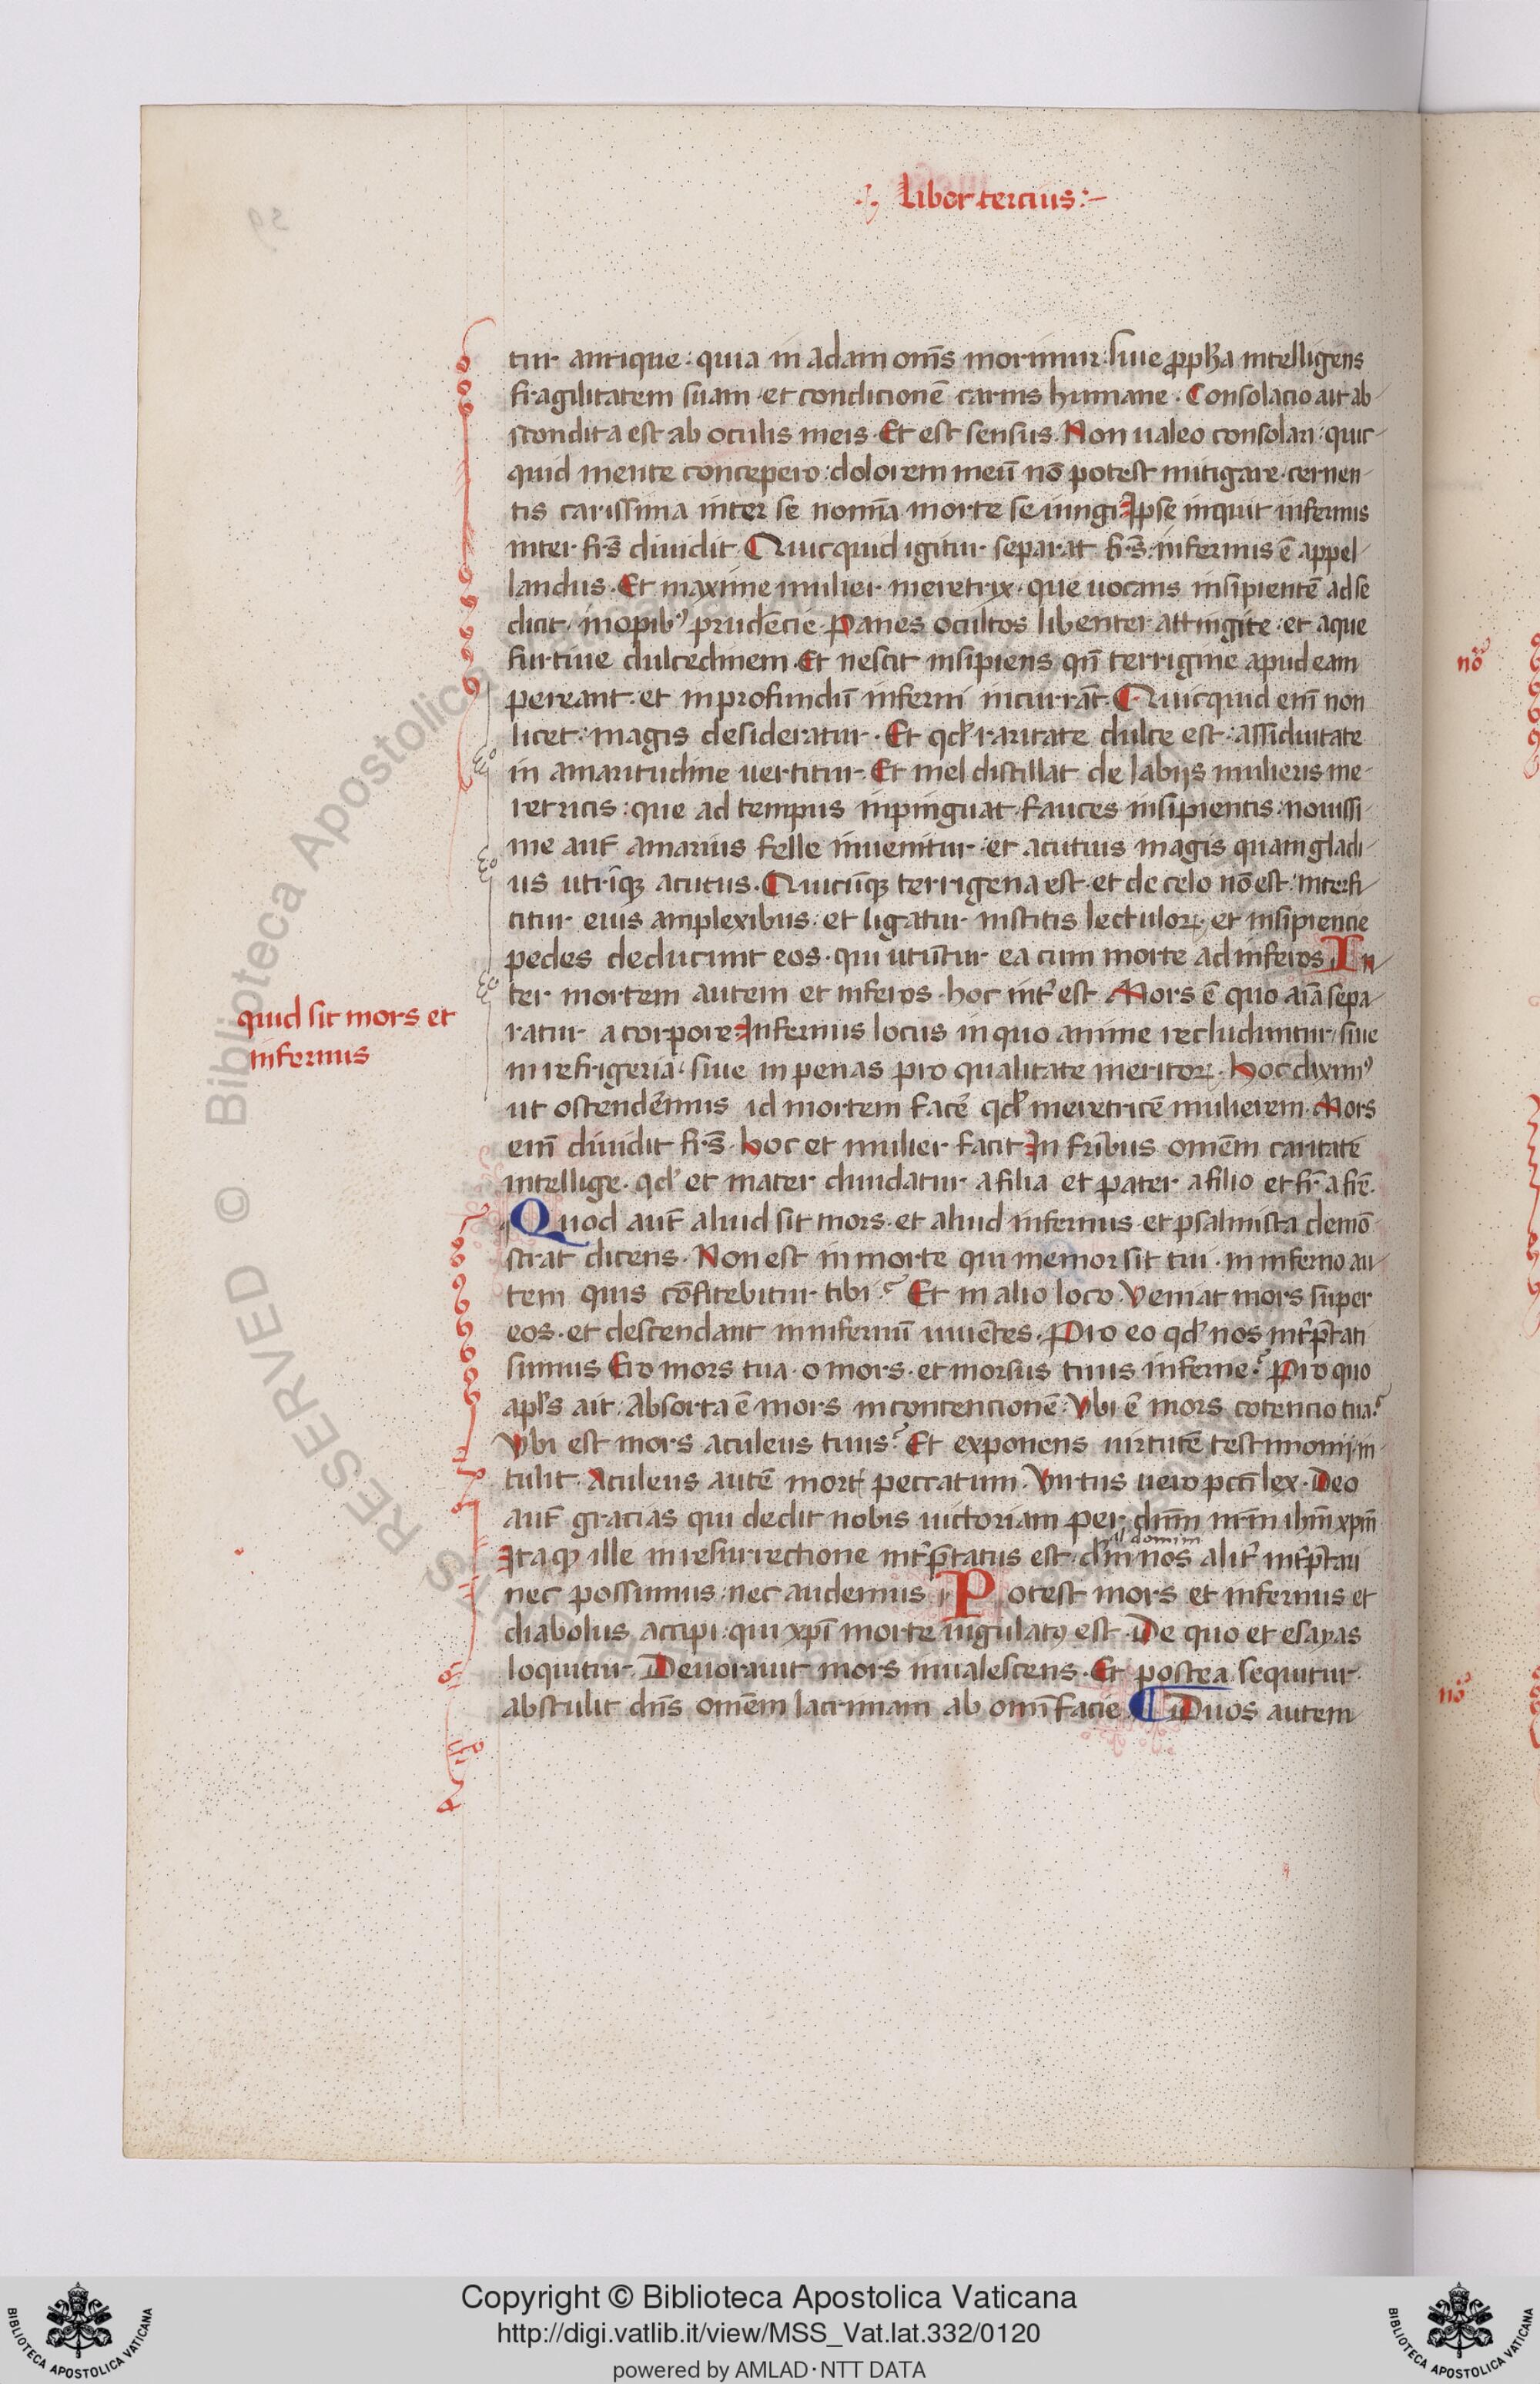 .·. Liber tercius :-
tur antique : quia in adam om̄s morimur : siue ꝓph̄a intelligens
fragilitatem suam · et condicionē carnis humane · Consolacio ait ab
scondita est ab oculis meis · Et est sensus · Non ualeo consolari : quic
quid mente concepero : dolorem meū nō potest mitigare · cernen
tis carissima inter se nomīa morte seiungi Ipse inquit infernus
inter fr̄s diuidit · Quicquid igitur separat fr̄s : infernus ē appel
landus · Et maxime mulier meretrix · que uocans insipientē ad se
dicit · inopibꝰ prudēcie · Panes ocultos libenter attingite · et aque
furtiue dulcedinem · Et nescit insipiens qn̄ terrigine apud eam
pereant · et in profundū inferni incurrāt · Quicquid eni̅ non
licet : magis desideratur · Et qd' raritate dulce est : assiduitate
in amaritudine uertitur · Et mel distillat de labijs mulieris me
retricis : que ad tempus inpinguat fauces insipientis : nouissi
me aut̄ amarius felle inuenitur · et acutius magis quam gladi
us utri̅qꝫ acutus · Quicūqꝫ terrigena est · et de celo nō est : interfi
citur eius amplexibus · et ligatur institis lectuloꝝ · et insipiencie
pedes deducunt eos · qui utūtur ea cum morte ad inferos In
ter mortem autem et inferos · hoc int̄est Mors ē quo ai̅a sepa
ratur a corpore Infernus locus in quo anime recluduntur / siue
in refrigeria · siue in penas pro qualitate meritoꝝ · Hoc diximꝰ
ut ostendēmus id mortem facē qd' meretricē mulierem · Mors
eni̅ diuidit fr̄s · hoc et mulier facit In fri̅bus omēm caritatē
intellige · qd' et mater diuidatur a filia et pater a filio et fr̄ a fr̄e ·
Quod aut̄ aliud sit mors · et aliud infernus · et psalmista demō
strat dicens · Non est in morte qui memor sit tui · in inferno au
tem quis cōfitebitur tibi ? Et in alio loco · Veniat mors super
eos · et descendant in infernū uiuētes · Pro eo qd' nos int̄p̄tati
sumus Ero mors tua · o mors · et morsus tuus inferne ? Pro quo
apl's ait · Absorta ē mors in contencionē : Vbi ē mors cōtencio tua ?
Vbi est mors aculeus tuus ? Et exponens uirtutē testimonij · in
tulit · Aculeus autē mort' peccatum · Virtus uero pcc̄i lex · Deo
aut̄ gracias qui dedit nobis uictoriam per dn̄m nr̄m ih̄m xp̄m
Itaqꝫ ille in resurrectione int̄p̄tatus est · dn̄i nos alit̄ int̄p̄tari
domini
nec possumus · nec audemus · Potest mors et infernus et
diabolus accipi : qui xp̄i morte iugulatꝰ est · De quo et esayas
loquitur · Deuorauit mors inualescens · Et postea sequitur ·
abstulit dn̄s omēm lacrimam ab omi̅ facie Duos autem
quid sit mors et
infernus
nō
nō
Copyright © Biblioteca Apostolica Vaticana
http://digi.vatlib.it/view/MSS_Vat.lat.332/0120
powered by AMLAD·NTT DATA